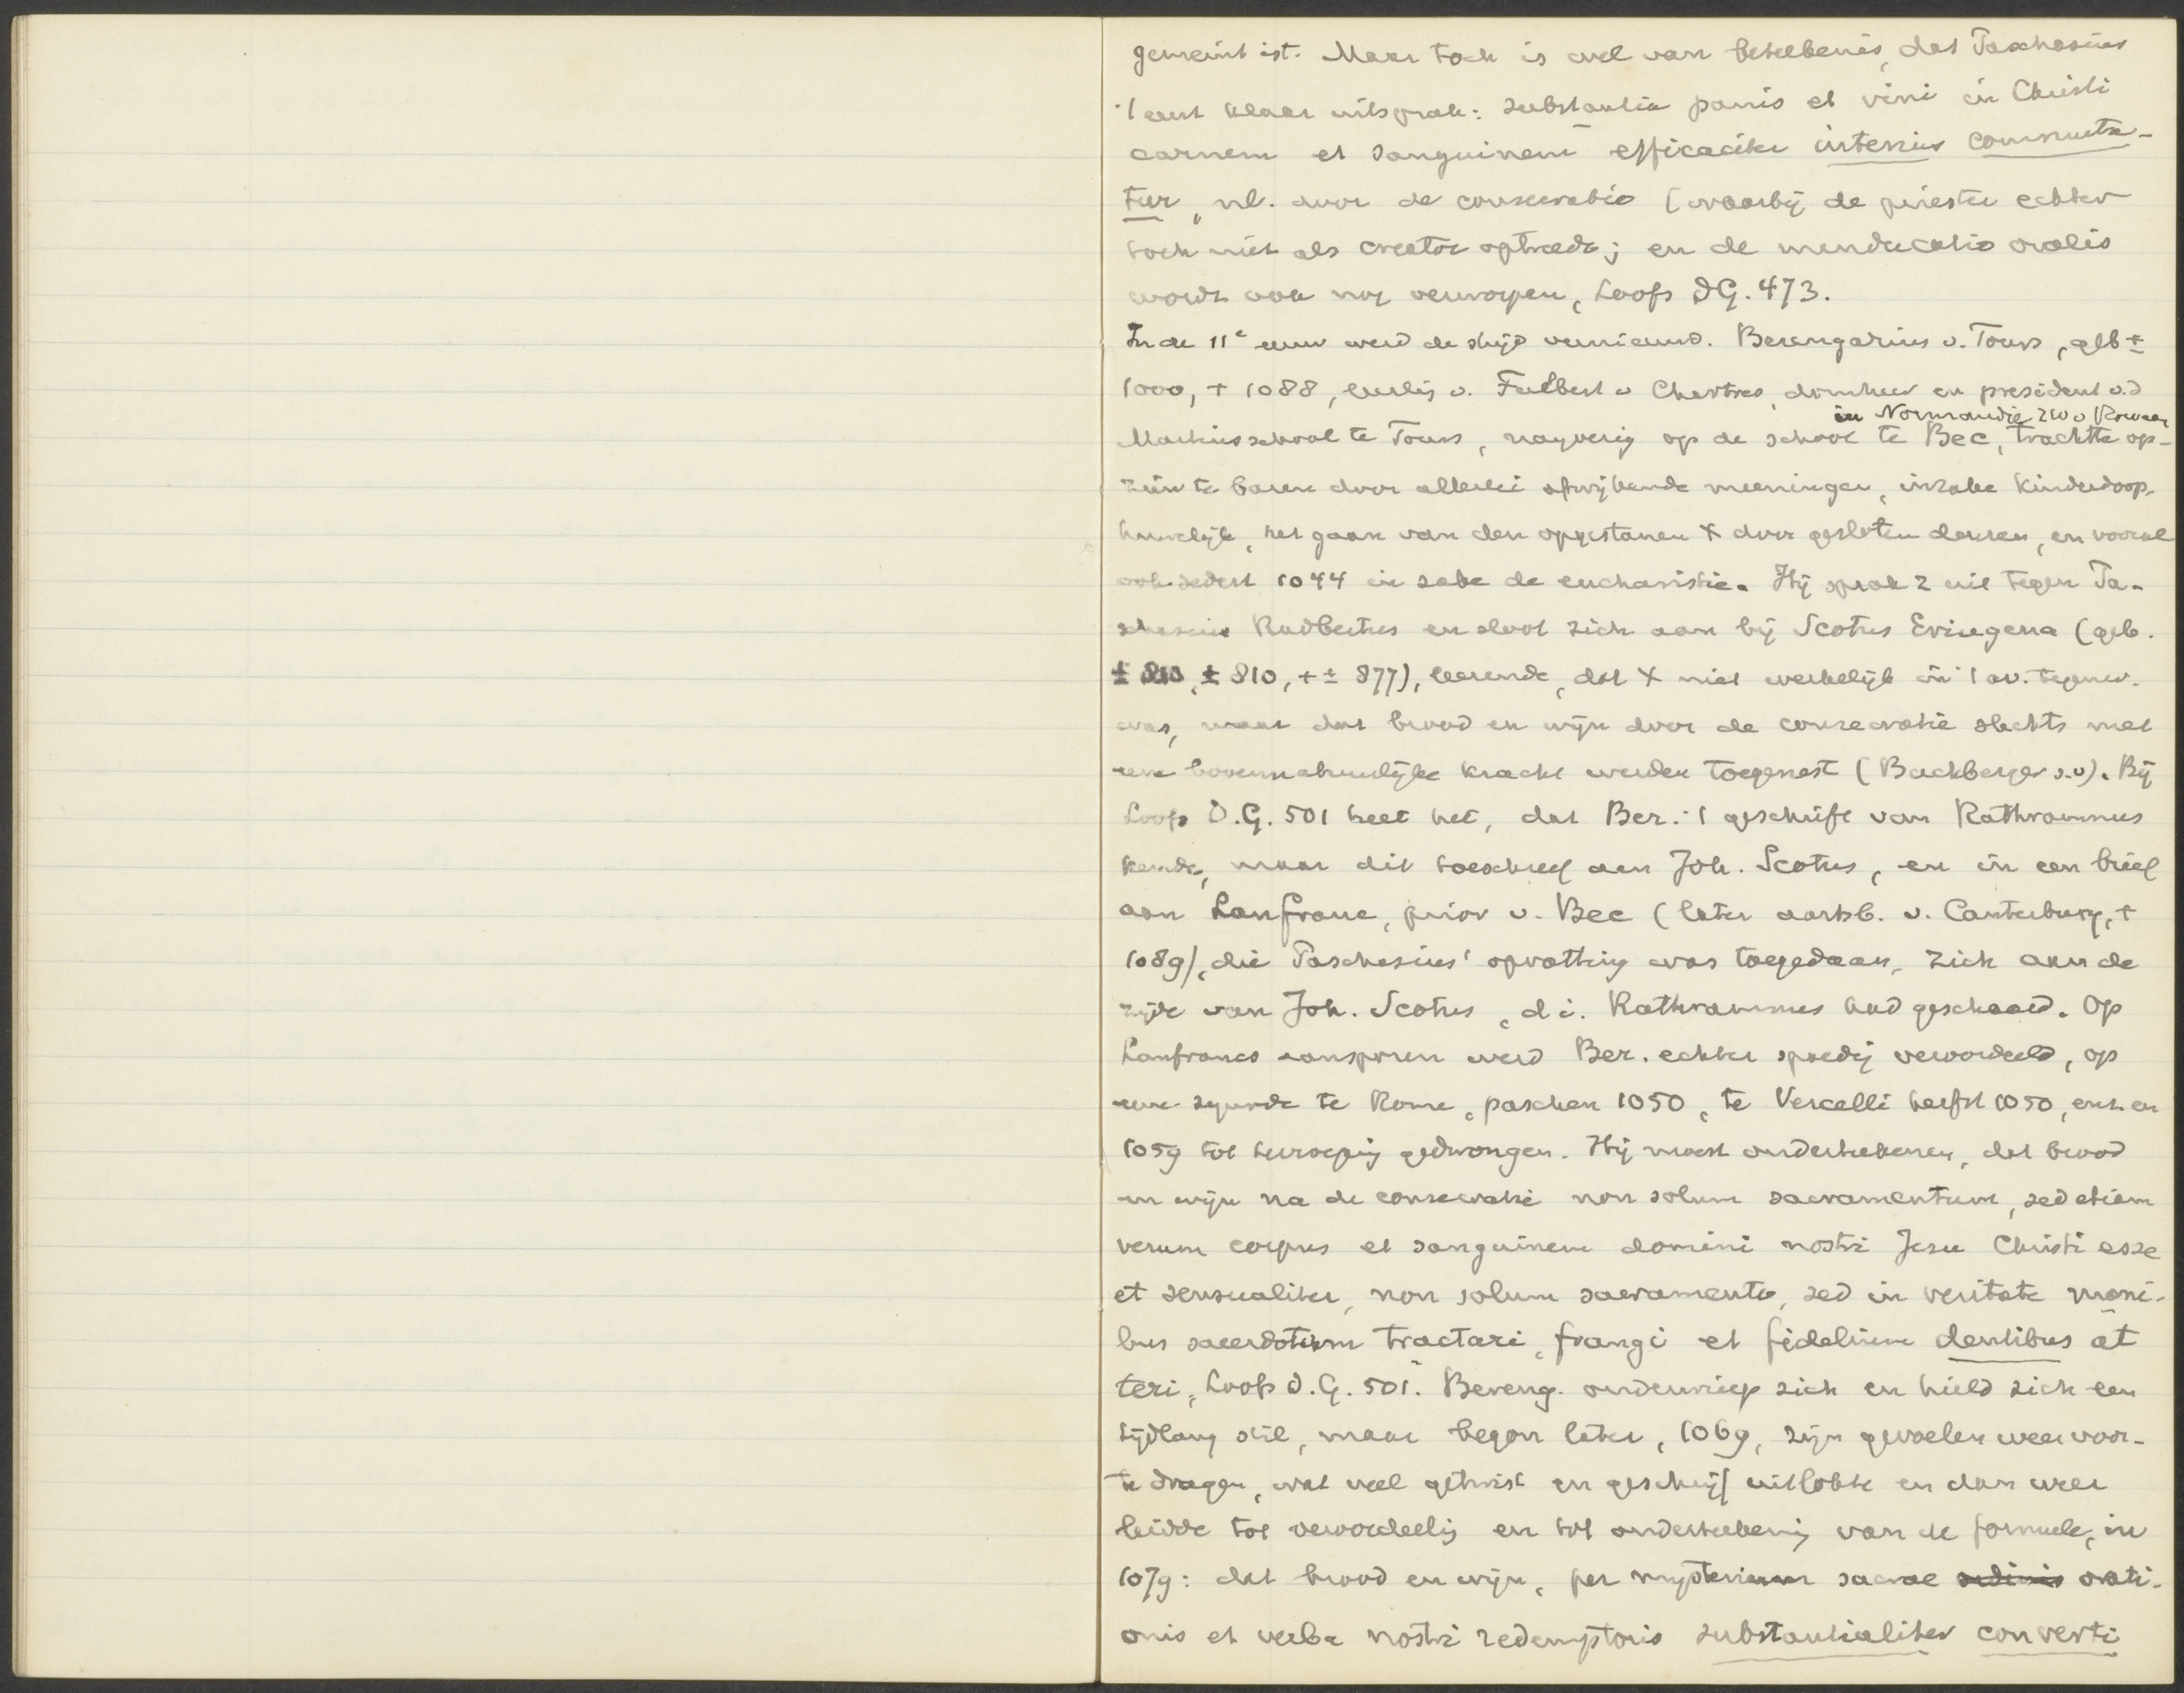 gemeint ist. Maar toch is wel van beteekenis, dat Paschasius
't eerst klaar uitsprak: substantia panis et vini in Christi
carnem et sanguinem efficaciter interius commuta-
tur, nl. door de consecratio (waarbij de priester echter
toch niet als creator optreedt; en de manducatio oralis
wordt ook nog verworpen, Loofs DG. 473.
In de 11e eeuw werd de strijd vernieuwd. Berengarius v. Tours, geb ±
1000, + 1088, leerlg v. Fulbert v Chartres, domheer en president v.d
in Normandie ZW v Rouaan
Martinsschool te Tours, nayverig op de school te Bec, trachtte op-
zien te baren door allerlei afwijkende meeningen, inzake kinderdoop,
huwelijk, het gaan van den opgestanen X door gesloten deuren, en vooral
ook sedert 1044 in zake de eucharistie. Hij sprak z uit tegen Pa-
schasius Radbertus en sloot zich aan bij Scotus Eriugena (geb.
± 810, ± 810, + ± 877), leerende, dat X niet werkelijk in 't av. tegenw.
was, maar dat brood en wijn door de consecratie slechts met
eene bovennatuurlijke kracht werden toegerust (Buchberger s.v). Bij
Loofs D.G. 501 heet het, dat Ber. 't geschrift van Rathramnus
kende, maar dit toeschreef aan Joh. Scotus, en in een brief
aan Lanfranc, prior v. Bec (later aartsb. v. Canterbury, +
1089), die Paschasius' opvatting was toegedaan, zich aan de
zijde van Joh. Scotus, d.i. Rathramnus had geschaard. Op
Lanfrancs aansporen werd Ber. echter spoedig veroordeeld, op
eene synode te Rome, paschen 1050, te Vercelli herfst 1050, enz. en
1059 tot herroeping gedwongen. Hij moest onderteekenen, dat brood
en wijn na de consecratie non solum sacramentum, sed etiam
verum corpus et sanguinem domini nostri Jesu Christi esse
et sensualiter, non solum sacramento, sed in veritate mani-
bus sacerdotum tractari, frangi et fidelium dentibus at
teri, Loofs D.G. 501. Bereng. onderwierp zich en hield zich een
tijdlang stil, maar begon later, 1069, zijn gevoelen weer voor-
te dragen, wat veel getwist en geschrijf uitlokte en dan weer
leidde tot veroordeelig en tot onderteekenig van de formule, in
1079: dat brood en wijn, per mysterium sacrae ordinis orati-
onis et verba nostri redemptoris substantialiter converti